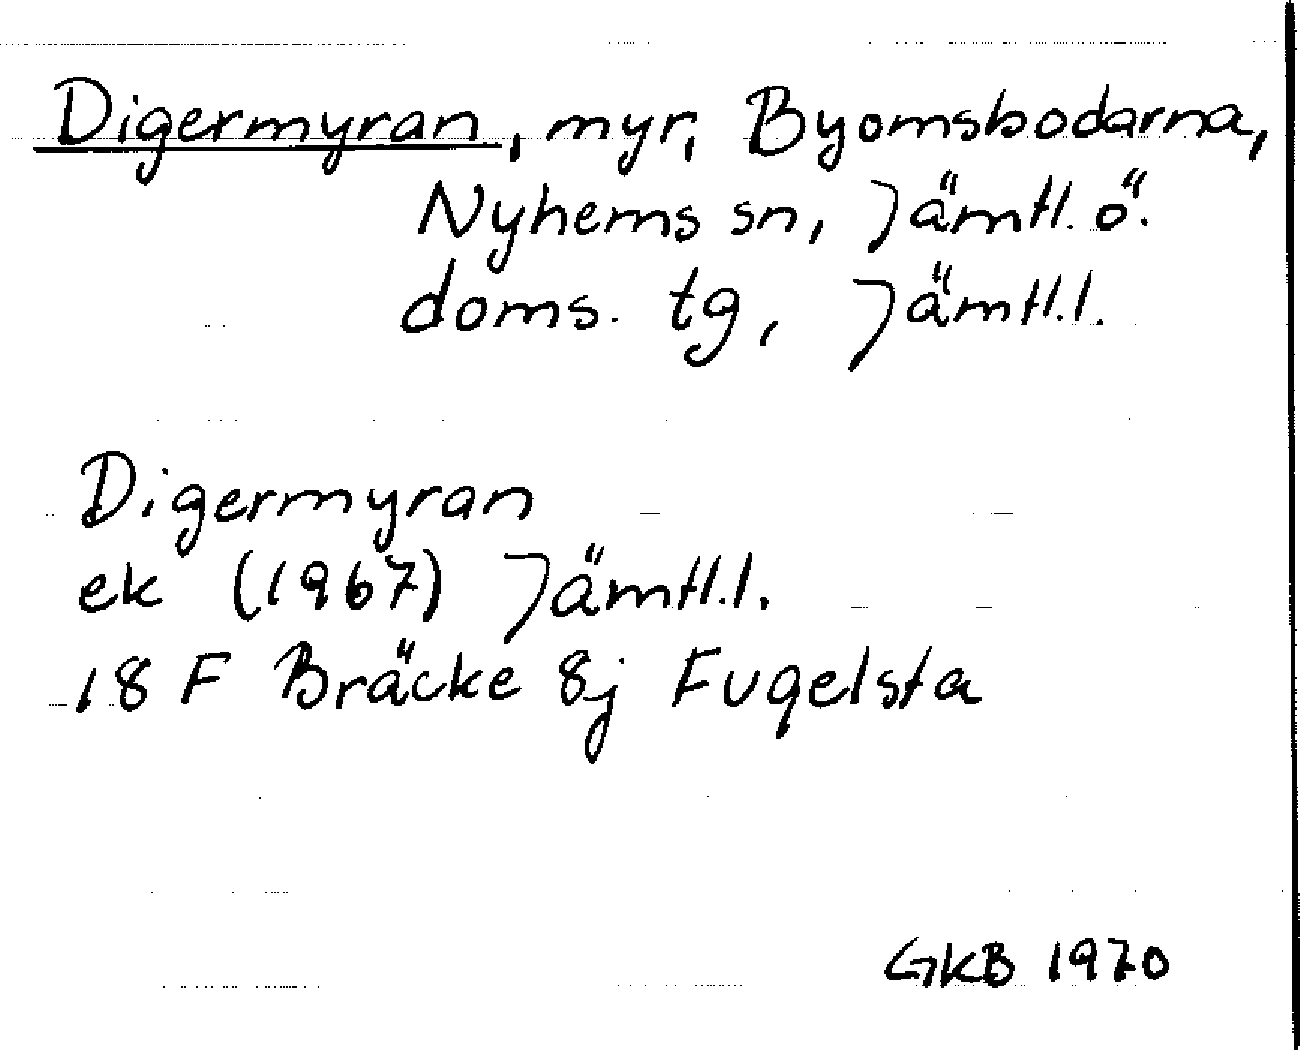 Digermyran, myr, Byomsbodarna,
Nyhems sn, Jämtl. ö.
doms. tg, Jämtl.l.
Digermyran
ek (1967) Jämtl.l.
18 F Bräcke 8j Fugelsta
GKB 1970